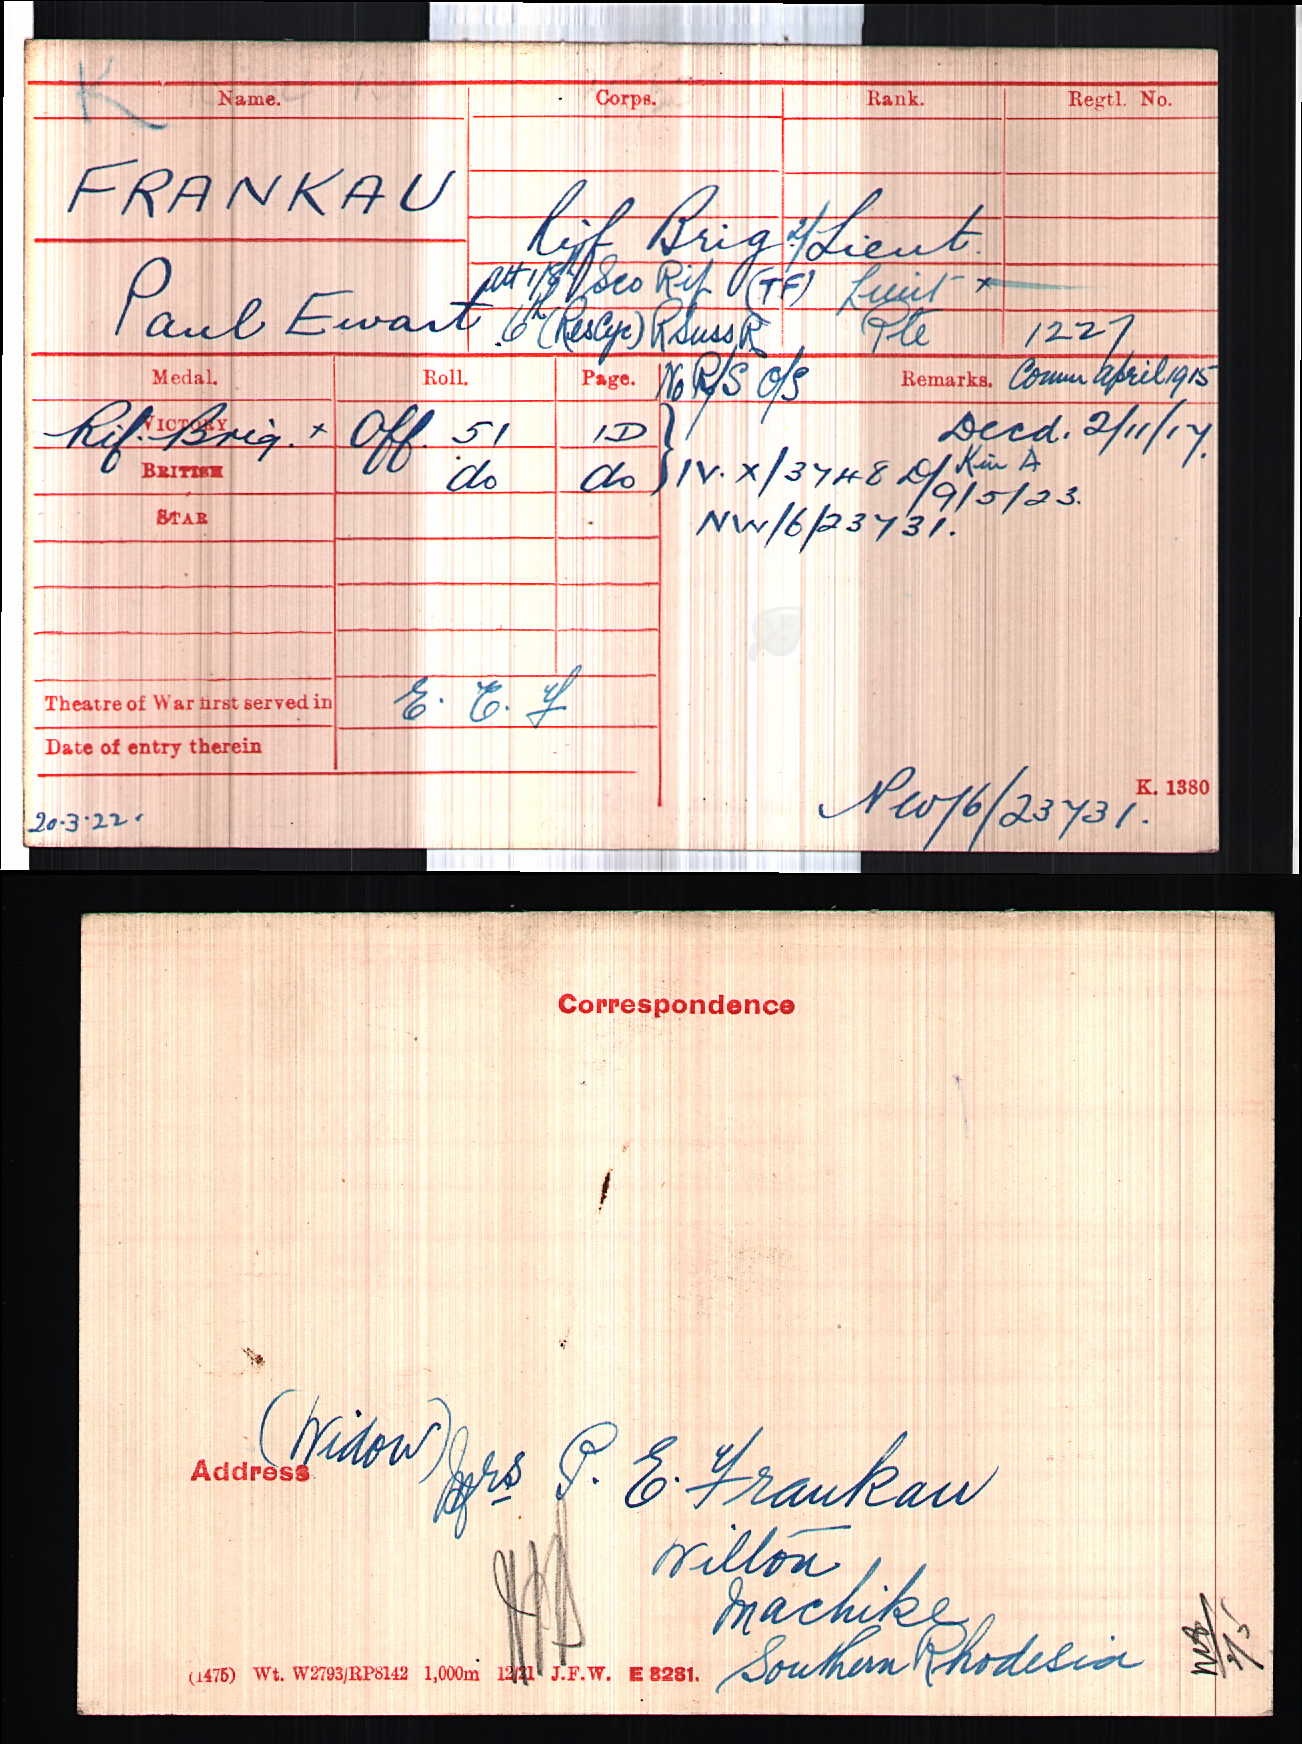 K
Name. Corps. Rank. Regtl. No.
FRANKAU
Rif Brig 2/Lieut.
att 1/8th Sco Rif (TF) Lieut x
Paul Ewart 6th (ResCyc) R Suss R Pte 1227
Medal. Roll. Page. No R/S O/S Remarks. Comm April 1915
VICTORY
Rif. Brig. x Off. 51 1D Decd. 2/11/17.
BRITISH do do } IV. X/3748 D/9/5/23. Kin A
STAR NW/6/23731.
Theatre of War first served in E. E. F
Date of entry therein
K. 1380
20.3.22. NW/6/23731.
Correspondence
(Widow)
Address Mrs P. E. Frankau
Wilton
Machike
Southern Rhodesia
(1475) Wt. W2793/RP8142 1,000m 12/21 J.F.W. E 8281.